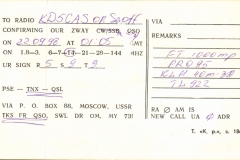 TO RADIO KD5CAS OP Scott
CONFIRMING OUR 2WAY CW/SSB QSO
ON 22.09.98 AT 01.05 GMT
ON 1.8–3. 6–7–14–21–28–144 MHZ
UR SIGN R 5 S 9 T 9
PSE – TNX – QSL
VIA P. O. BOX 88, MOSCOW, USSR
TKS FR QSO, SWL DR OM, MY 73!
VIA
REMARKS
FT 1000mp
PRO 95
KLM 40m-3el
TL 922
RA Ø AM IS
NEW CALL UA Ø ADR